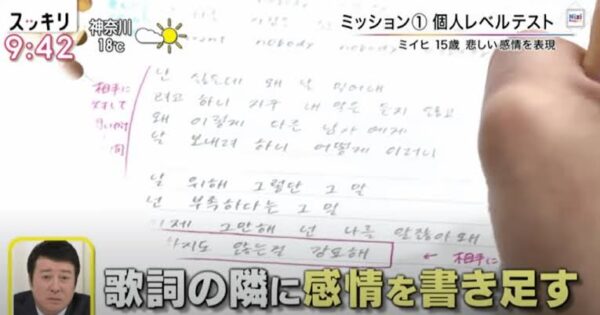 スッキリ
9:42
神奈川
18℃
Nizi
ミッション① 個人レベルテスト
ミイヒ 15歳 悲しい感情を表現
nobody nobody
난 싫은데 왜 날 밀어내
려고 하니 자꾸 내 말은 듣지 않고
왜 이렇게 다른 남자에게
날 보내려 하니 어떻게 이러니
날 위해 그렇단 그 말
넌 부족하다는 그 말
이제 그만해 넌 나를 알잖아 왜
하지도 않는걸 강요해
相手に
相手に
歌詞の隣に感情を書き足す